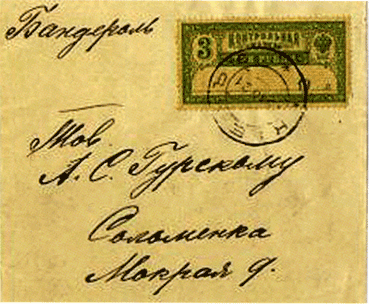 Бандероль
3 КОНТРОЛЬНАЯ
Тов.
А. С. Гурскому
Соломенка
Мокрая 9.